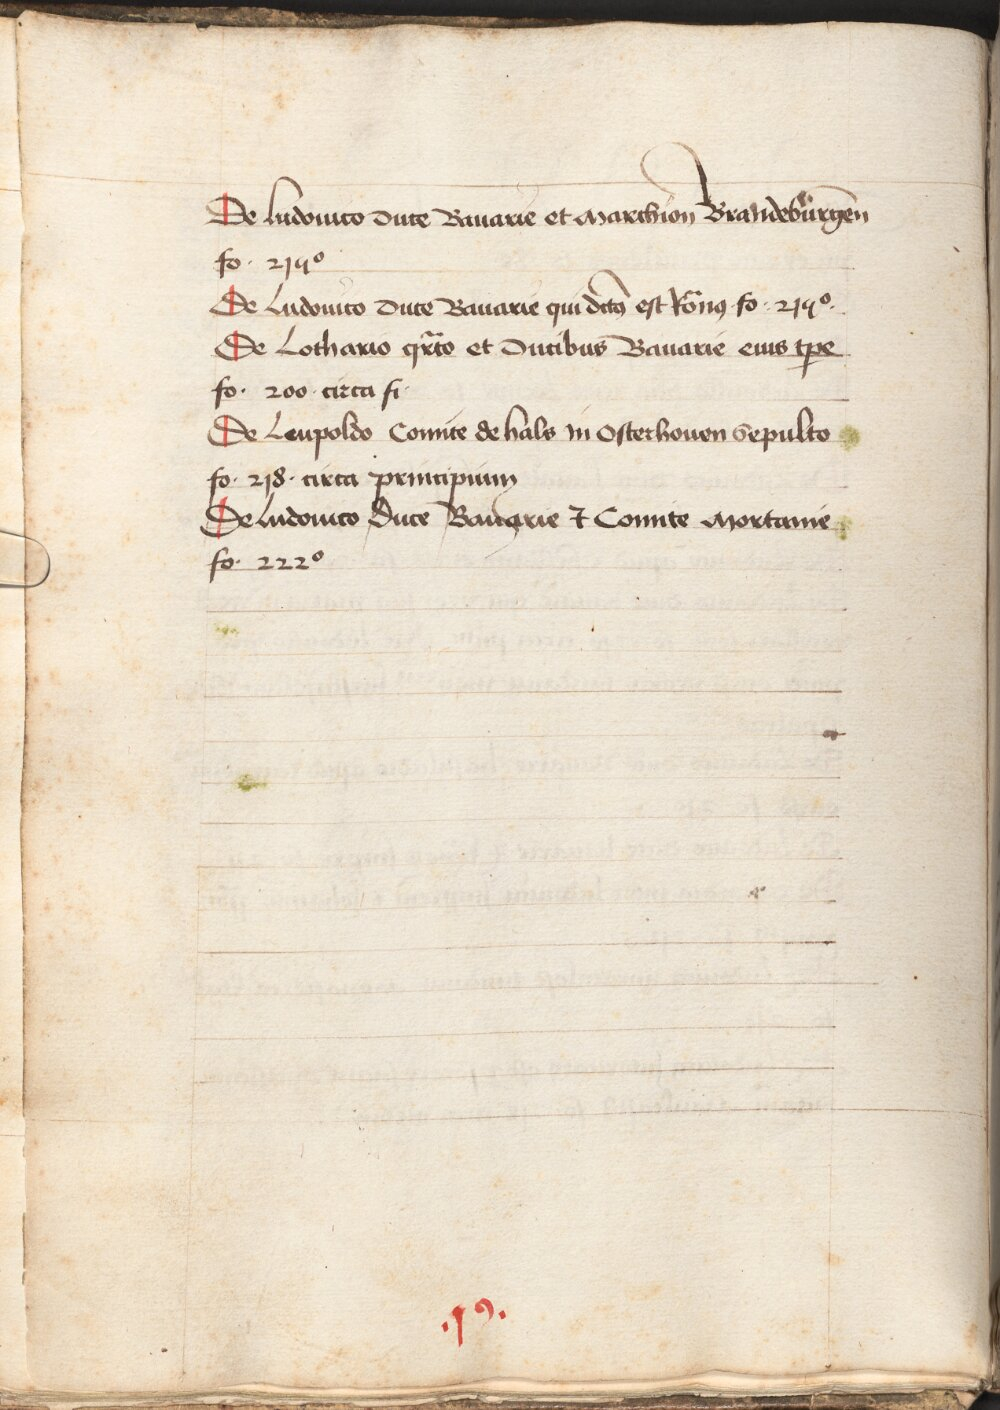 De Ludouico Duce Bauarie et Marchion Brandeburgen
fo · 219º
De Ludouico Duce Bauarie qui dctus est Ro͞nus fo · 219º ·
De Lothario qrto et Ducibus Bauarie eius tpe
fo · 200 · circa fi ·
De Leupoldo Comite de hals in Osterhouen Sepulto
fo · 218 · circa principium
De Ludouico Duce Bauarie & Comite Mortanie
fo · 222º